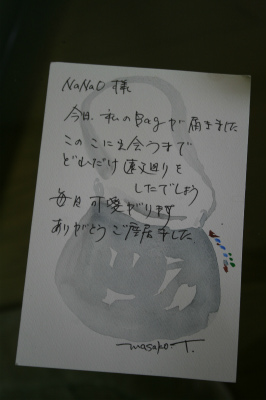 NaNaO 様
今日、私のBagが届きました
このこに出会うまで
どれだけ遠廻りを
したでしょう
毎日可愛がります
ありがとうございました
masako.T.